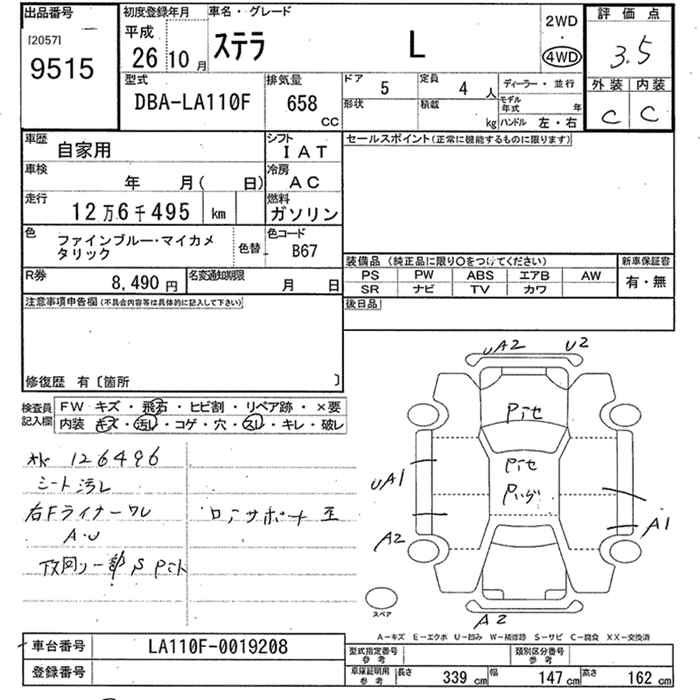 出品番号
[2057]
9515
初度登録年月
平成
26 10 月
車名・グレード
ステラ L
2WD
・
4WD
評価点
3.5
外装 内装
C C
型式
DBA-LA110F
排気量
658
CC
ドア 5
定員 4 人
形状
積載 kg
ディーラー・並行
モデル年式 年
ハンドル 左・右
車歴
自家用
シフト
IAT
車検
年 月( 日)
冷房
AC
走行
12万6千495 km
燃料
ガソリン
色
ファインブルー・マイカメ
タリック
色替
色コード
B67
R券
8,490 円
名変通知期限
月 日
注意事項申告欄(不具合内容等は具体的に記入して下さい)
修復歴 有〔箇所 〕
セールスポイント(正常に機能するものに限ります)
装備品(純正品に限り○をつけてください)
PS PW ABS エアB AW
SR ナビ TV カワ
新車保証書
有・無
後日品
検査員
記入欄
FW キズ・飛石・ヒビ割・リペア跡・×要
内装 キズ・汚レ・コゲ・穴・スレ・キレ・破レ
126496
シート汚レ
右Fライナーワレ
A・U
下回り一部S Pit
UA2 U2
UA1
A2
A1
A2
スペア
A−キズ E−エクボ U−凹み W−補修跡 S−サビ C−腐食 XX−交換済
車台番号
LA110F-0019208
登録番号
型式指定番号
参考
類別区分番号
参考
車庫証明用
参考
長さ 339 cm
幅 147 cm
高さ 162 cm